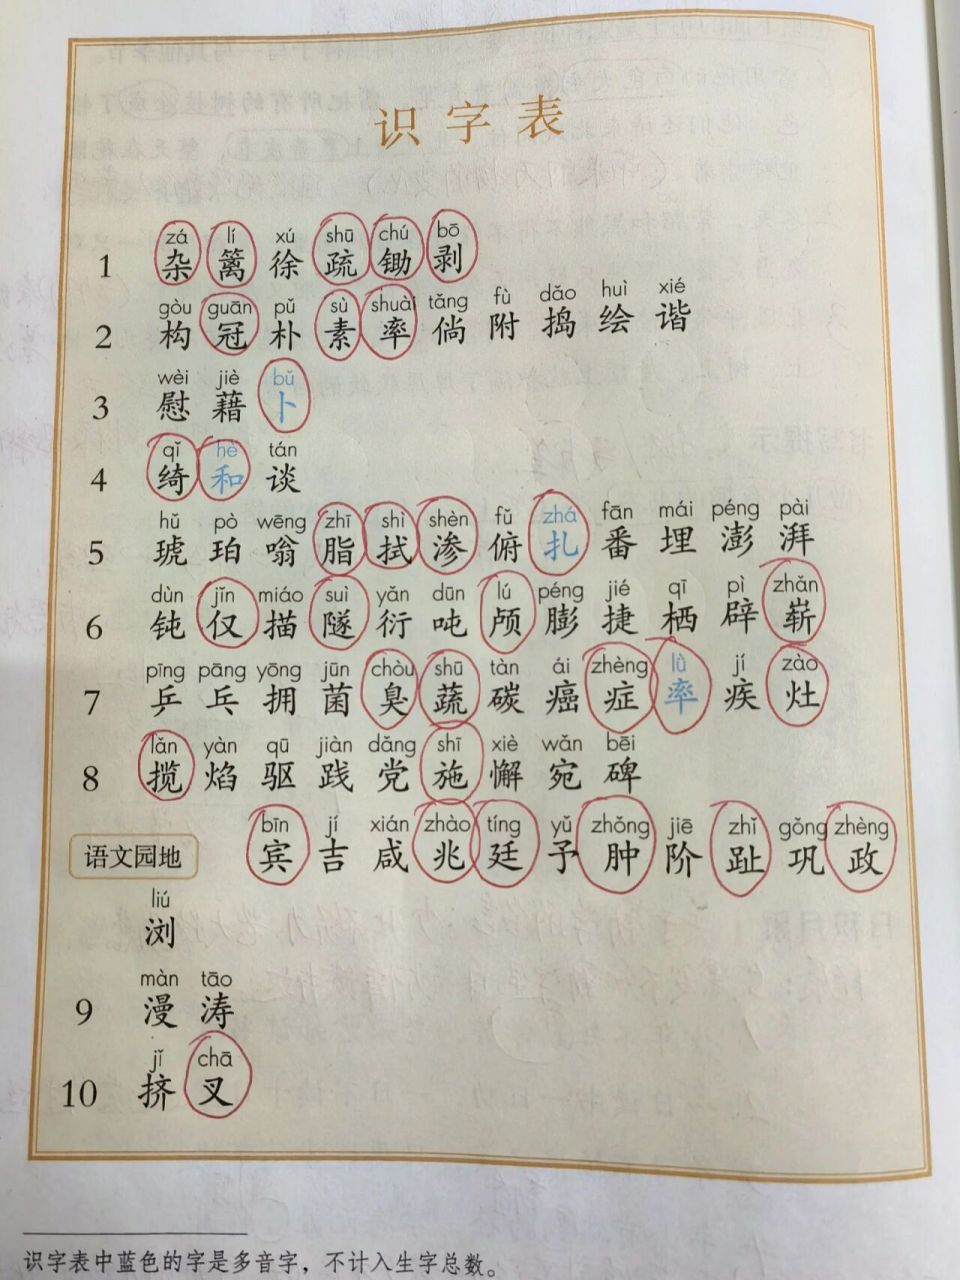 识字表
zá lí xú shū chú bō
1 杂 篱 徐 疏 锄 剥
gòu guān pǔ sù shuài tǎng fù dǎo huì xié
2 构 冠 朴 素 率 倘 附 捣 绘 谐
wèi jiè bǔ
3 慰 藉 卜
qǐ hè tán
4 绮 和 谈
hǔ pò wēng zhī shì shèn fǔ zhá fān mái péng pài
5 琥 珀 嗡 脂 拭 渗 俯 扎 番 埋 澎 湃
dùn jǐn miáo suì yǎn dūn lú péng jié qī pì zhǎn
6 钝 仅 描 隧 衍 吨 颅 膨 捷 栖 辟 崭
pīng pāng yōng jūn chòu shū tàn ái zhèng lǜ jí zào
7 乒 乓 拥 菌 臭 蔬 碳 癌 症 率 疾 灶
lǎn yàn qū jiàn dǎng shī xiè wǎn bēi
8 揽 焰 驱 践 党 施 懈 宛 碑
bīn jí xián zhào tíng yǔ zhǒng jiē zhǐ gǒng zhèng
语文园地 宾 吉 咸 兆 廷 予 肿 阶 趾 巩 政
liú
浏
màn tāo
9 漫 涛
jǐ chā
10 挤 叉
识字表中蓝色的字是多音字，不计入生字总数。